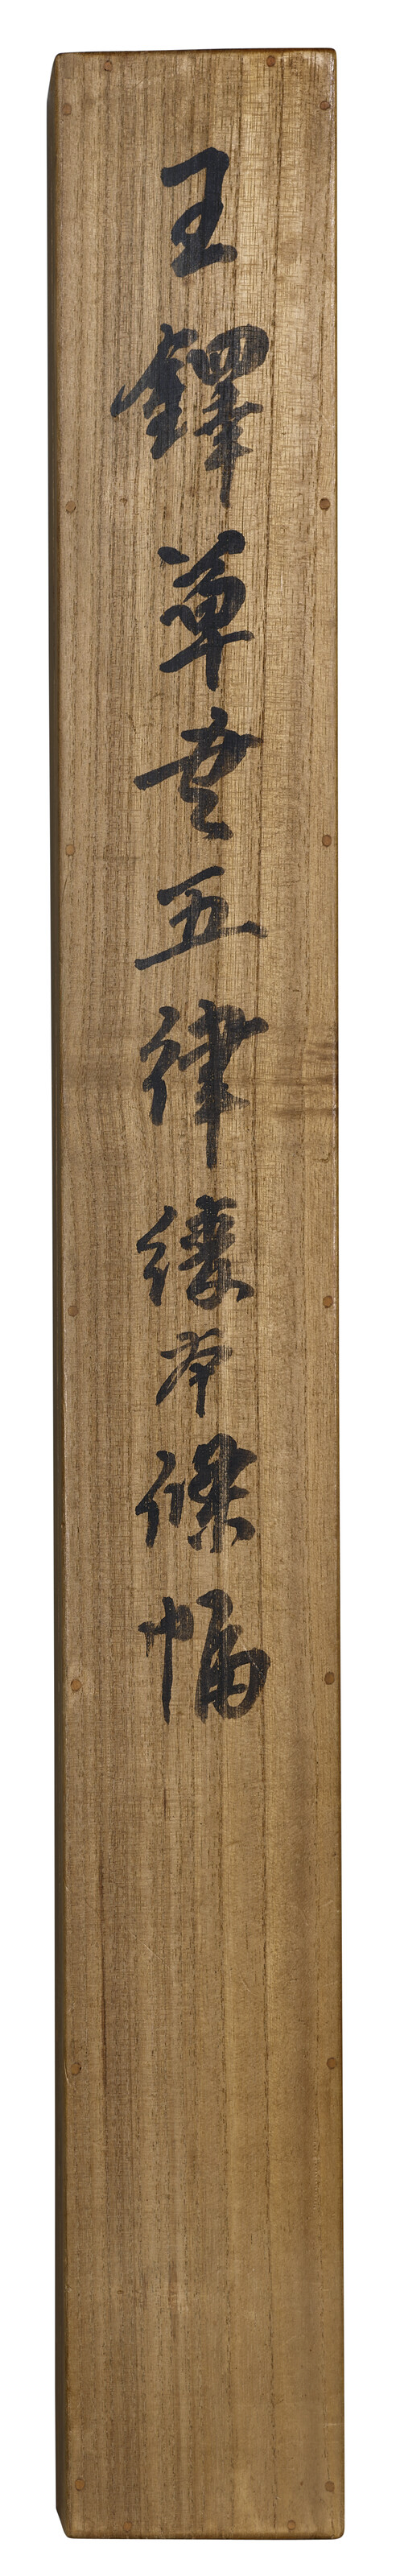 王鐸草書五律綾本條幅